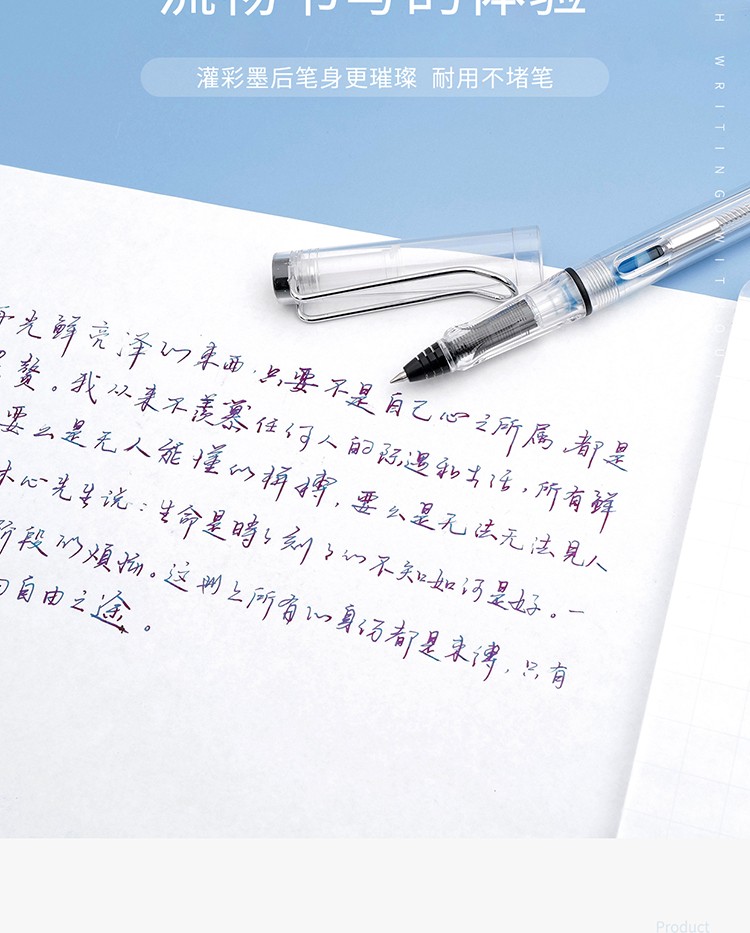 流畅书写的体验
灌彩墨后笔身更璀璨 耐用不堵笔
H WRITING WIT OUT
光鲜亮泽的东西，只要不是自己心之所属 都是
赘。我从来不羡慕任何人的际遇和生活，所有鲜
要么是无人能懂的拼搏，要么是无法无法见人
木心先生说：生命是時时刻刻的不知如何是好。一
阶段的烦恼。这世上所有的身份都是束缚，只有
自由之途。
Product